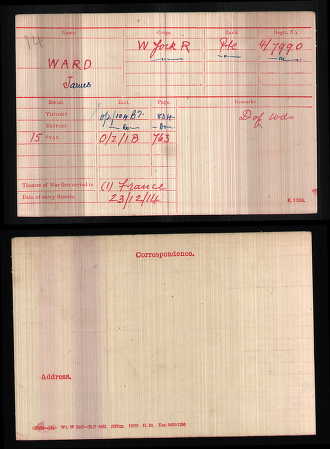 Name. Corps. Rank. Regtl. No.
WARD W York R Pte 4/7990
James
Medal. Roll. Page. Remarks.
Victory O/2/104 B7. D of Wds
British — Do — — Do —
15 Star O/2/1B 763
Theatre of War first served in (1) France
Date of entry therein 23/12/14
K. 1380.
Correspondence.
Address.